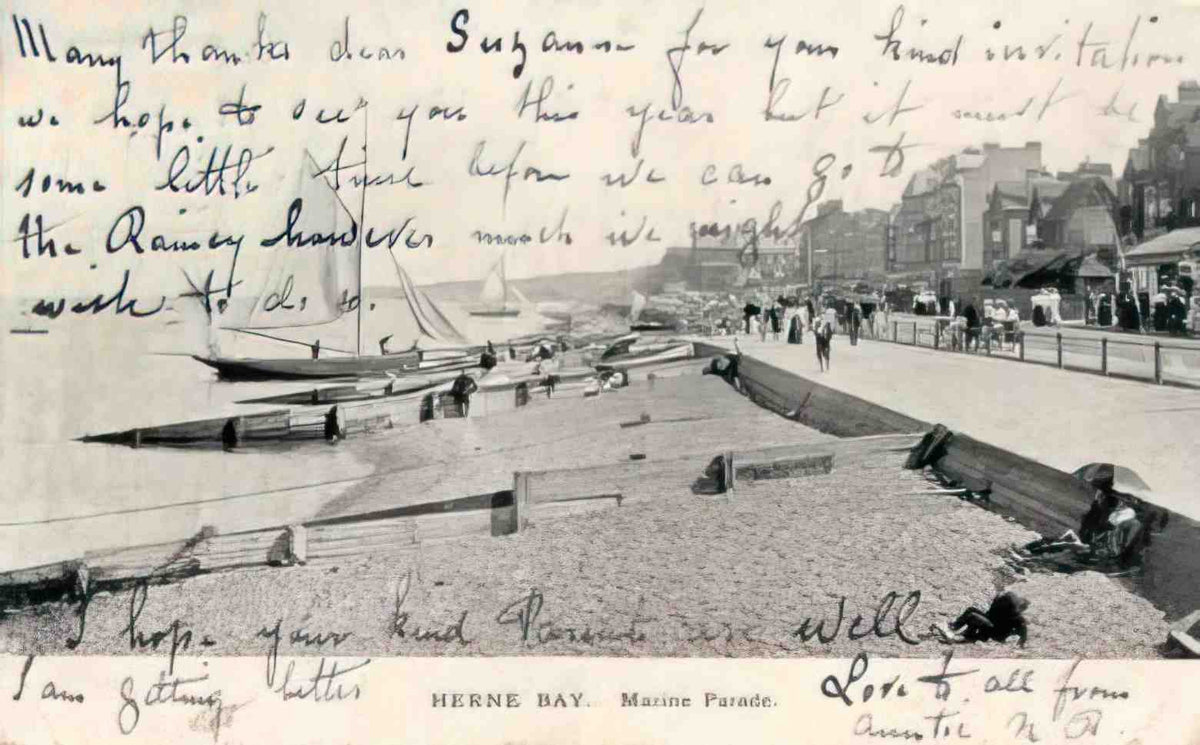 Many thanks dear Suzanne for your kind invitation
we hope to see you this year but it must be
some little time before we can go to
the Rainey however much we might
wish to do so.
I hope your kind Parents are well
I am getting better
HERNE BAY. Marine Parade.
Love to all from
Auntie N